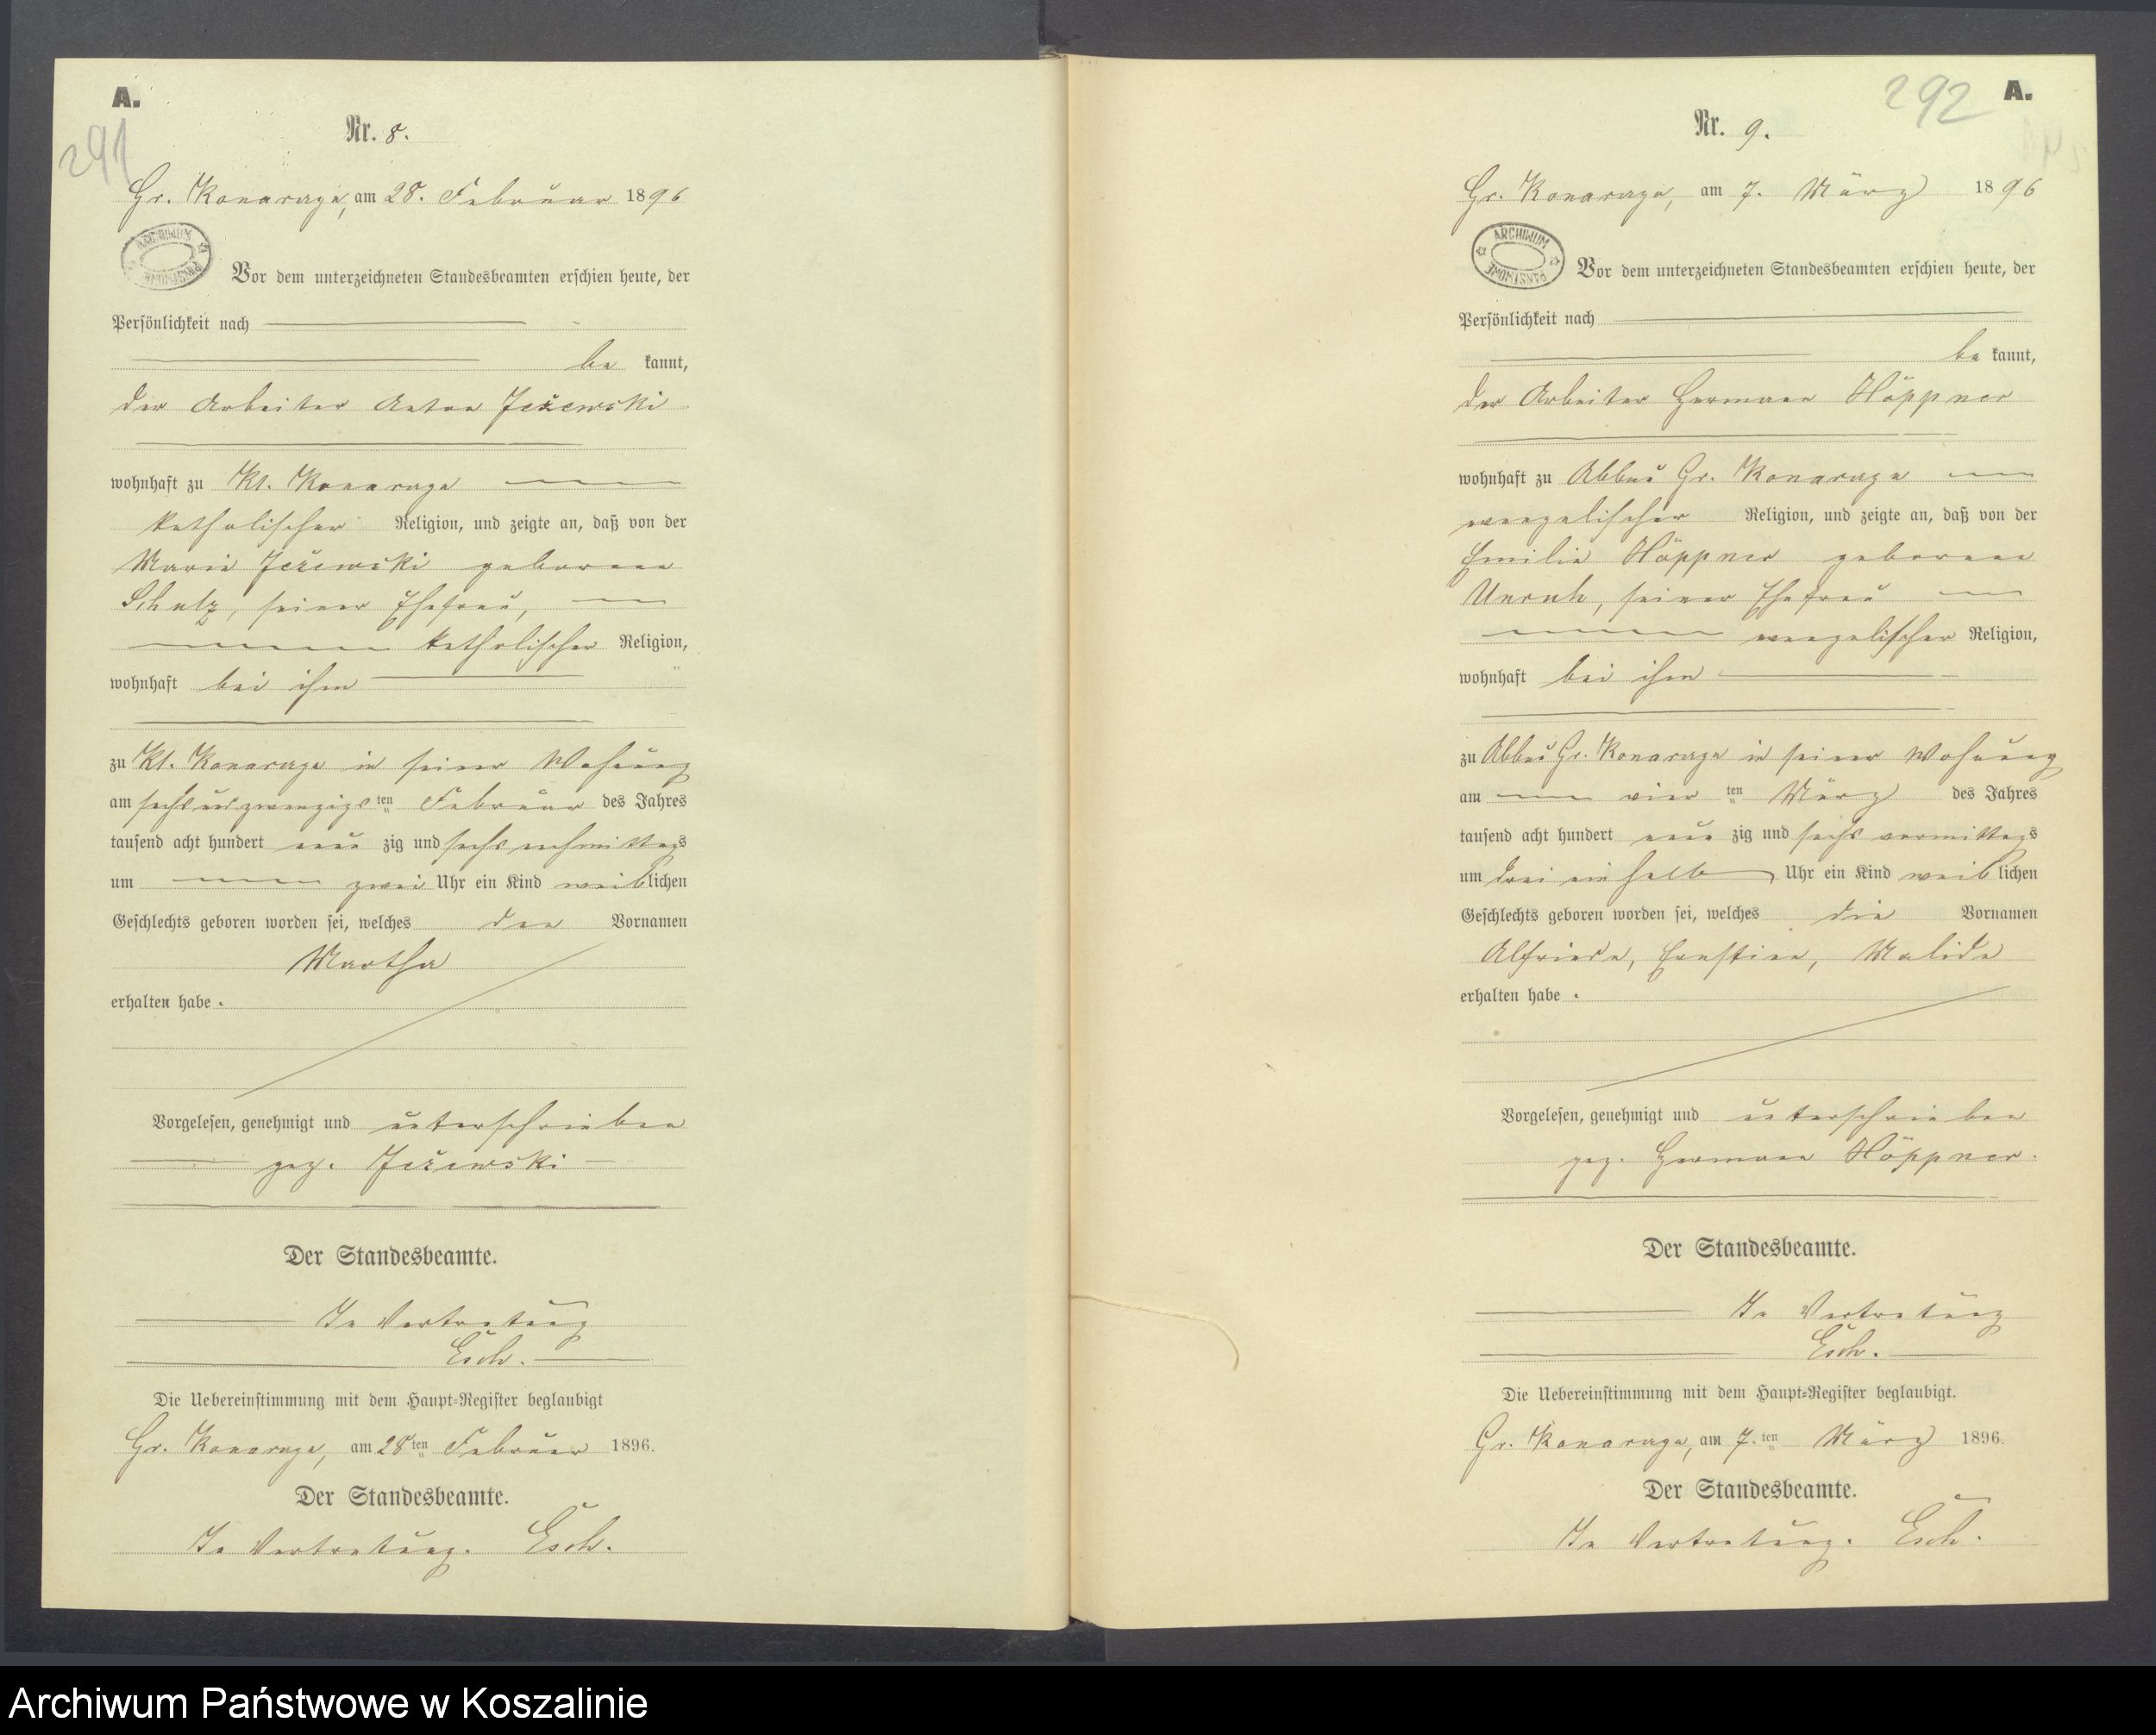 A.
291
Nr. 8.
Gr. Konarczyn, am 28. Februar 1896
ARCHIWUM PAŃSTWOWE
Vor dem unterzeichneten Standesbeamten erschien heute, der
Persönlichkeit nach
be kannt,
der Arbeiter Anton Ježewski
wohnhaft zu Kl. Konarczyn
katholischer Religion, und zeigte an, daß von der
Marie Ježewski geborene
Schulz, seiner Ehefrau,
katholischer Religion,
wohnhaft bei ihm
zu Kl. Konarczyn in seiner Wohnung
am sechsundzwanzigsten Februar des Jahres
tausend acht hundert neunzig und sechs nachmittags
um zwei Uhr ein Kind weiblichen
Geschlechts geboren worden sei, welches den Vornamen
Martha
erhalten habe.
Vorgelesen, genehmigt und unterschrieben
gez. Ježewski
Der Standesbeamte.
In Vertretung
Esch.
Die Uebereinstimmung mit dem Haupt-Register beglaubigt
Gr. Konarczyn, am 28ten Februar 1896.
Der Standesbeamte.
In Vertretung. Esch.
292
A.
Nr. 9.
Gr. Konarczyn, am 7. März 1896
ARCHIWUM PAŃSTWOWE
Vor dem unterzeichneten Standesbeamten erschien heute, der
Persönlichkeit nach
be kannt,
der Arbeiter Hermann Höppner
wohnhaft zu Abbau Gr. Konarczyn
evangelischer Religion, und zeigte an, daß von der
Emilie Höppner geborene
Unruh, seiner Ehefrau
evangelischer Religion,
wohnhaft bei ihm
zu Abbau Gr. Konarczyn in seiner Wohnung
am vier ten März des Jahres
tausend acht hundert neunzig und sechs vormittags
um drei ein halb Uhr ein Kind weiblichen
Geschlechts geboren worden sei, welches die Vornamen
Alfriede, Ernstine, Malide
erhalten habe.
Vorgelesen, genehmigt und unterschrieben
gez. Hermann Höppner.
Der Standesbeamte.
In Vertretung
Esch.
Die Uebereinstimmung mit dem Haupt-Register beglaubigt.
Gr. Konarczyn, am 7.ten März 1896.
Der Standesbeamte.
In Vertretung. Esch.
Archiwum Państwowe w Koszalinie